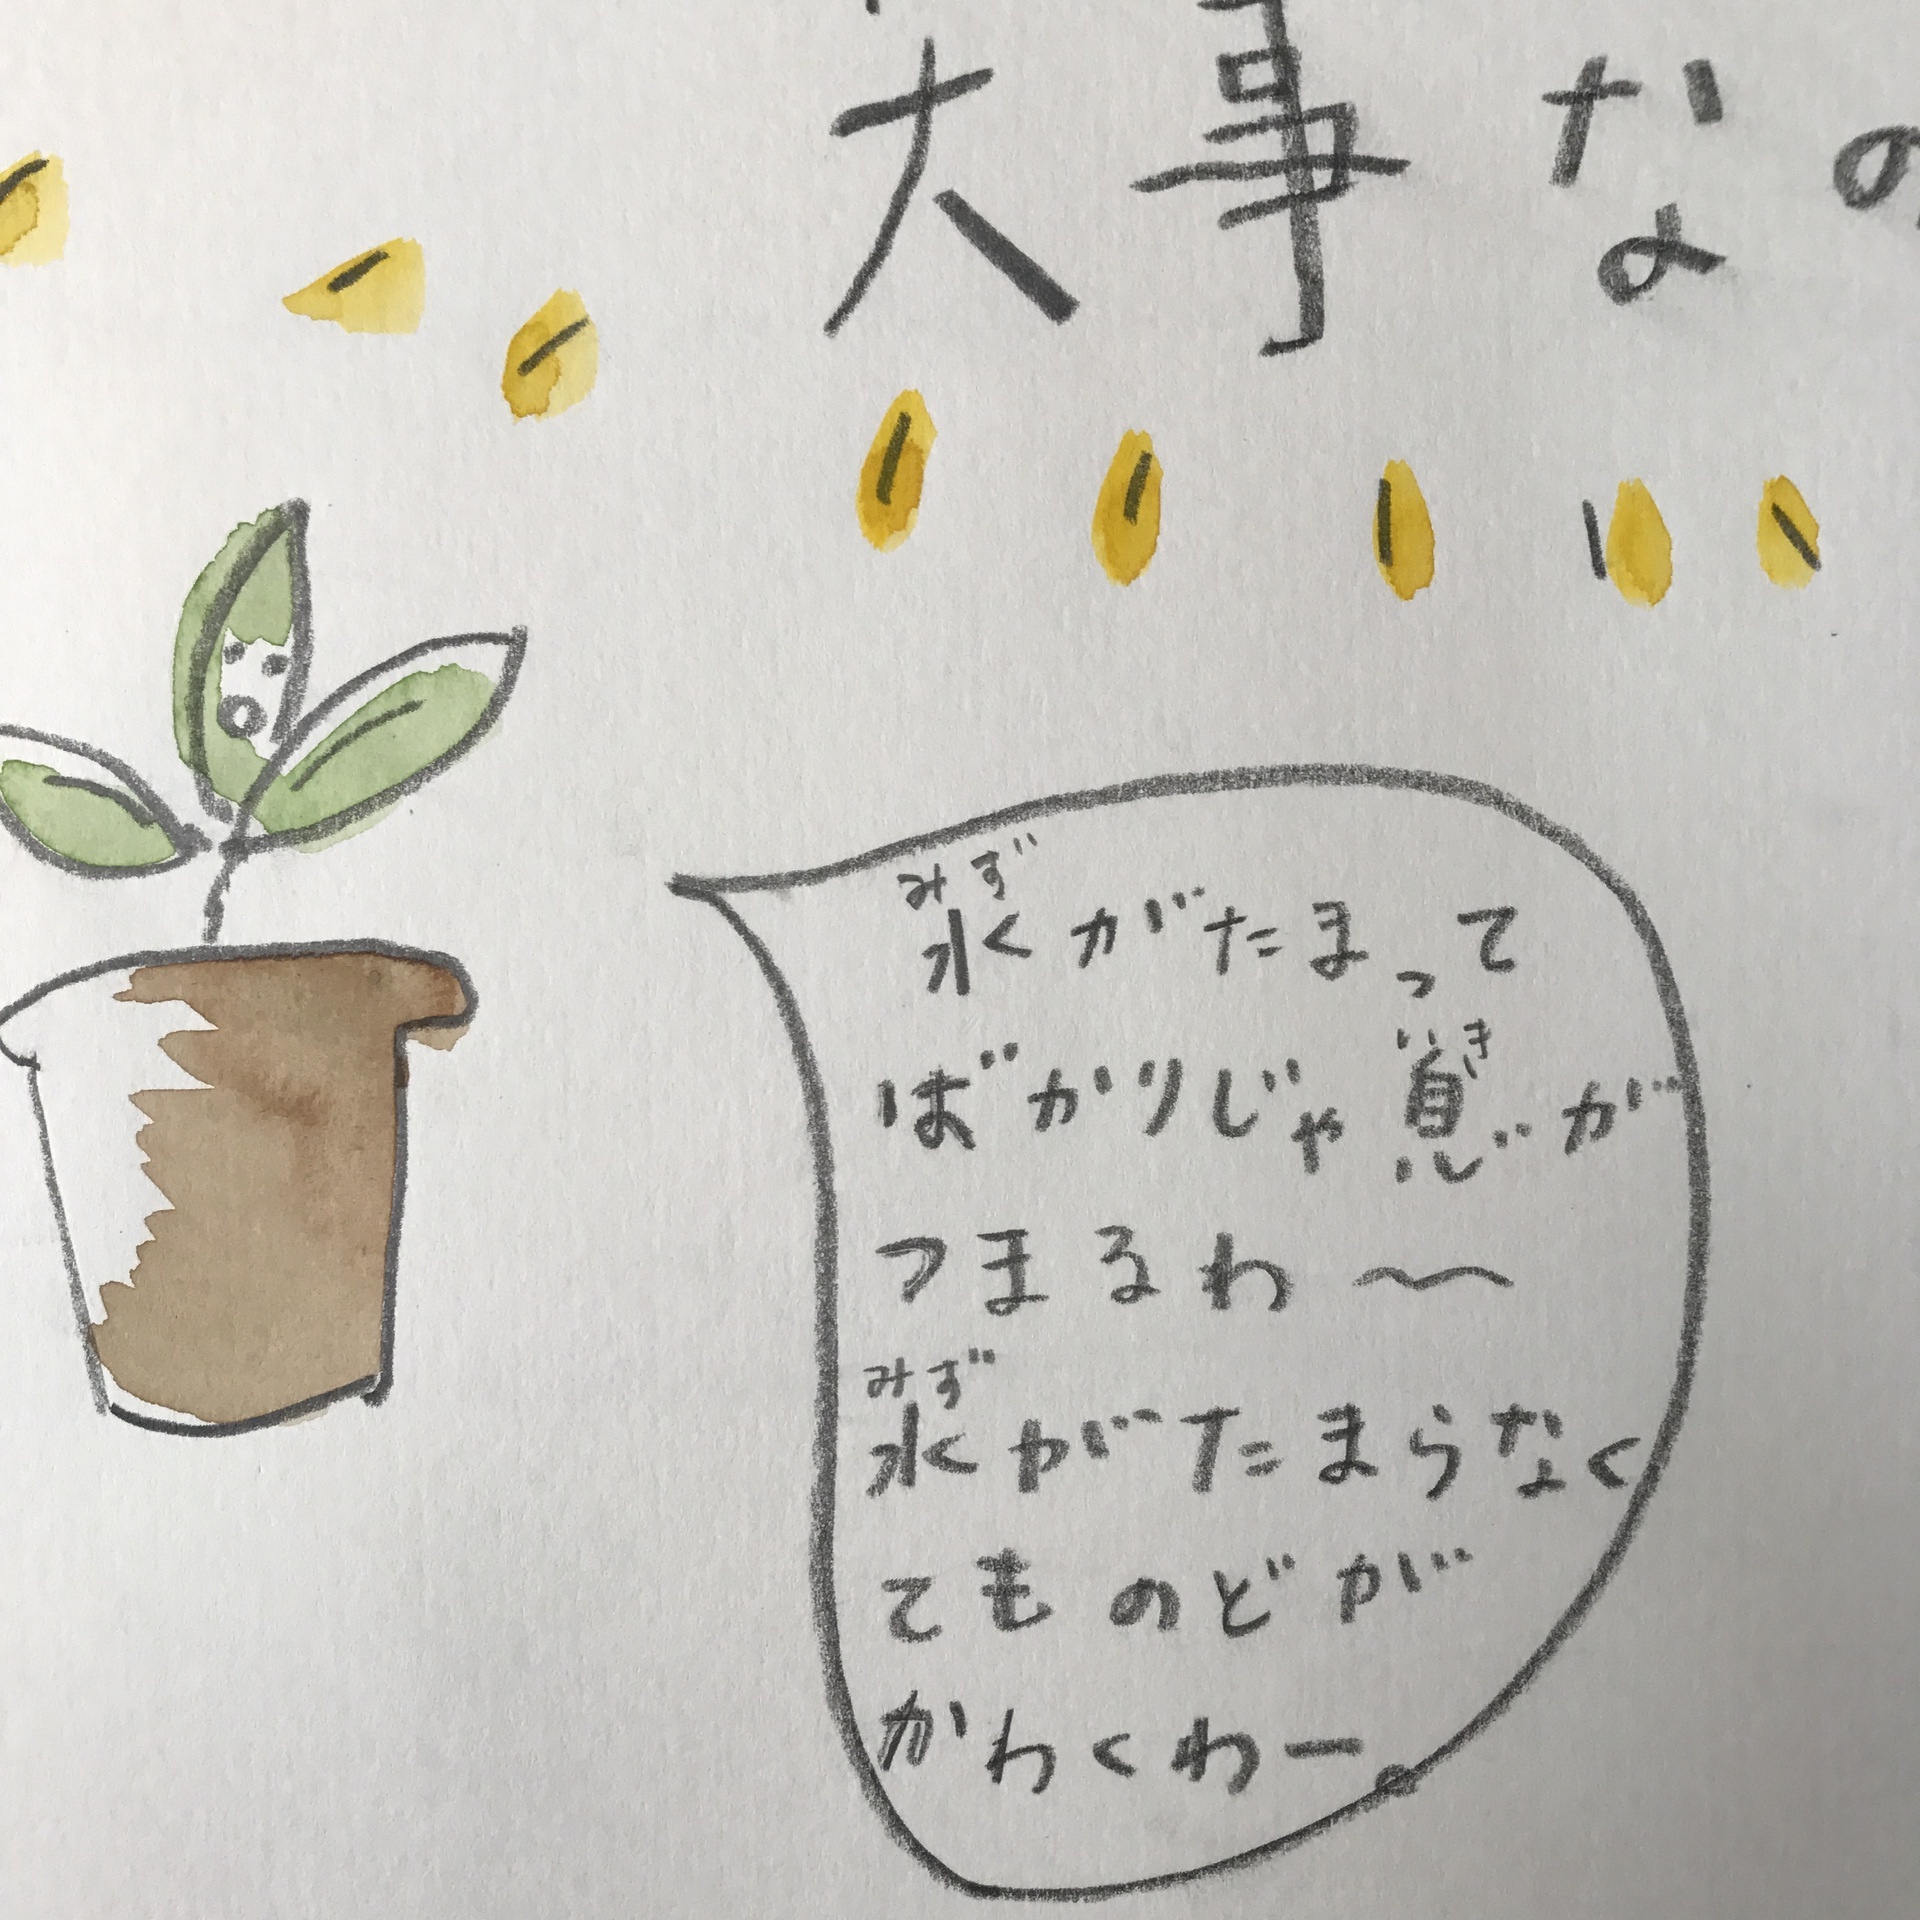 大事なの
水がたまって
みず
ばかりじゃ息が
いき
つまるわ〜
水がたまらなく
みず
てものどが
かわくわー。